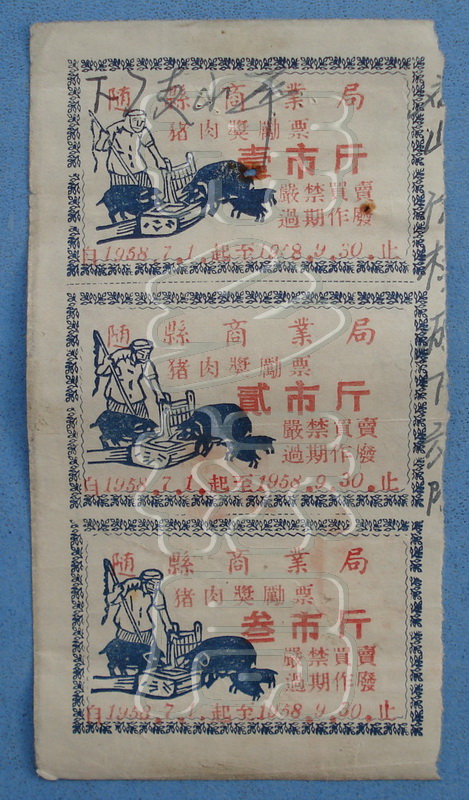 随縣商業局
猪肉奬勵票
壹市斤
嚴禁買賣
過期作廢
自1958.7.1.起至1958.9.30.止
随縣商業局
猪肉奬勵票
貳市斤
嚴禁買賣
過期作廢
自1958.7.1.起至1958.9.30.止
随縣商業局
猪肉奬勵票
叁市斤
嚴禁買賣
過期作廢
自1958.7.1.起至1958.9.30.止